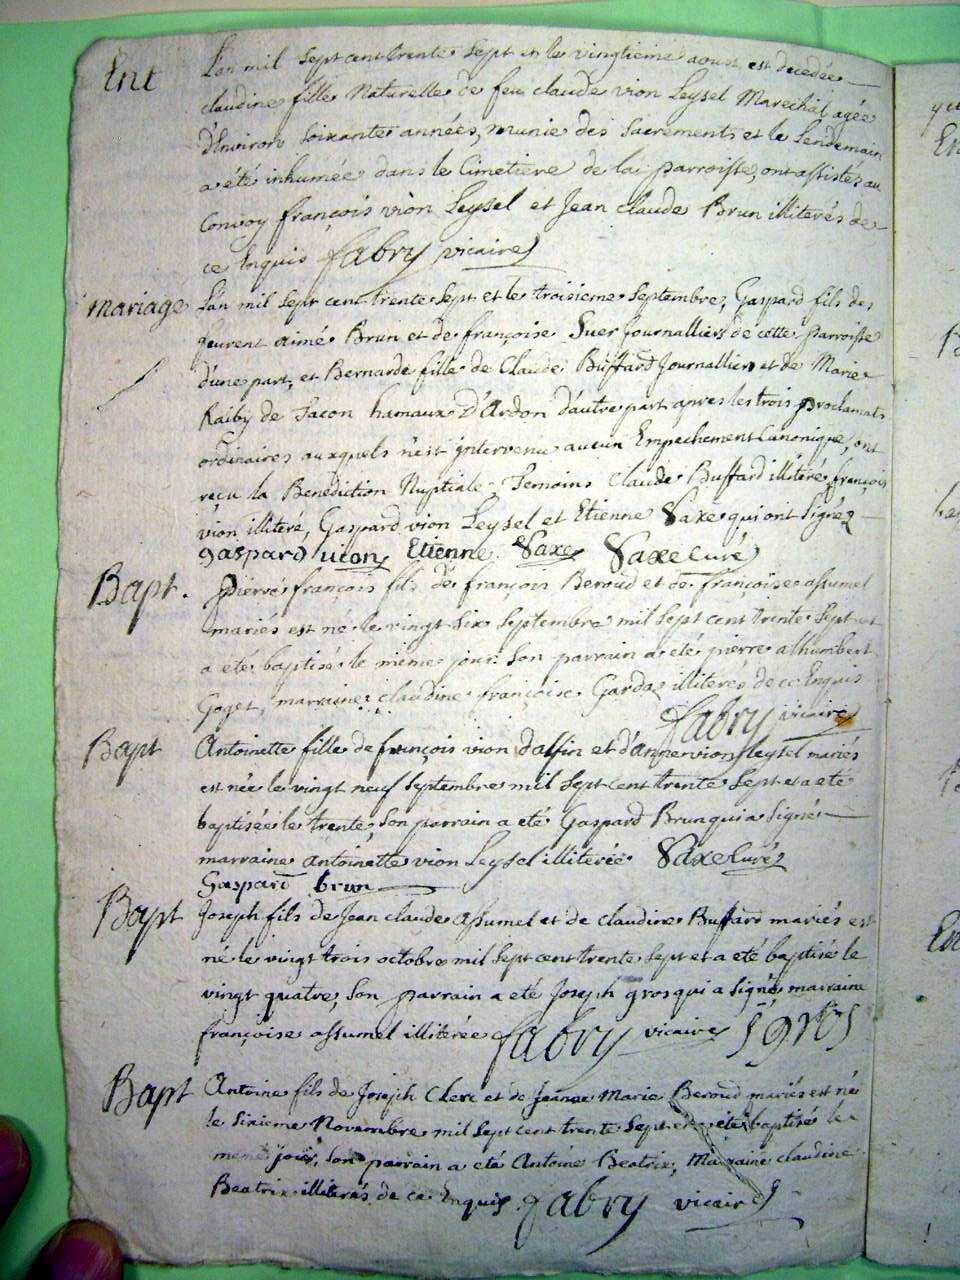 Ent L'an mil sept cent trente sept et le vingtieme aoust est decedée
claudine fille Naturelle de feu claude vion Leysel Marechal agée
d'Environ soixante années, munie des sacrements et le Lendemain
a été inhumée dans le Cimetiere de la parroisse, ont assistés au
Convoy françois vion Leysel et Jean claude Brun illiterés de
ce Enquis fabry vicaire
Mariage L'an mil sept cent trente sept et le troisieme septembre, Gaspard fils des
feurent aimé Brun et de françoise Suer Journalliers de cette parroisse
d'une part, et Bernarde fille de Claude Buffard Journallier et de Marie
Raiby de Tacon hamaux D'Ardon d'autre part apres les trois proclamats
ordinaires auxquels n'est intervenu aucun Empechement Canonique, ont
reçu la Benediction Nuptiale Temoins Claude Buffard illiteré, françois
vion illiteré, Gaspard vion Leysel et Etienne Saxe qui ont signéz
gaspard vion Etienne Saxe Saxe Curé
Bapt. pierre françois fils de françois Beroud et de françoise assumel
mariés est né le vingt six septembre mil sept cent trente sept et
a été baptisé le meme jour son parrain a été pierre alhumbert
Goget, marraine claudine françoise Gardaz illiterés de ce Enquis
fabry vicaire
Bapt Antoinette fille de françois vion Dalfin et d'anne vion Leysel mariés
est née le vingt neuf septembre mil sept cent trente sept et a été
baptisée le trente, son parrain a été Gaspard Brun qui a signé
marraine antoinette vion Leysel illiterée Saxe Curé
Gaspard brun
Bapt Joseph fils de Jean claude assumel et de claudine Buffard mariés est
né le vingt trois octobre mil sept cent trente sept et a été baptisé le
vingt quatre, son parrain a été Joseph gros qui a signé marraine
françoise assumel illiterée fabry vicaire J gros
Bapt Antoine fils de Joseph Clerc et de Jeanne Marie Beroud mariés est né
le sixieme Novembre mil sept cent trente sept et a été baptisé le
meme jour, son parrain a été Antoine Beatrix, Marraine claudine
Beatrix illiterés de ce Enquis fabry vicaire